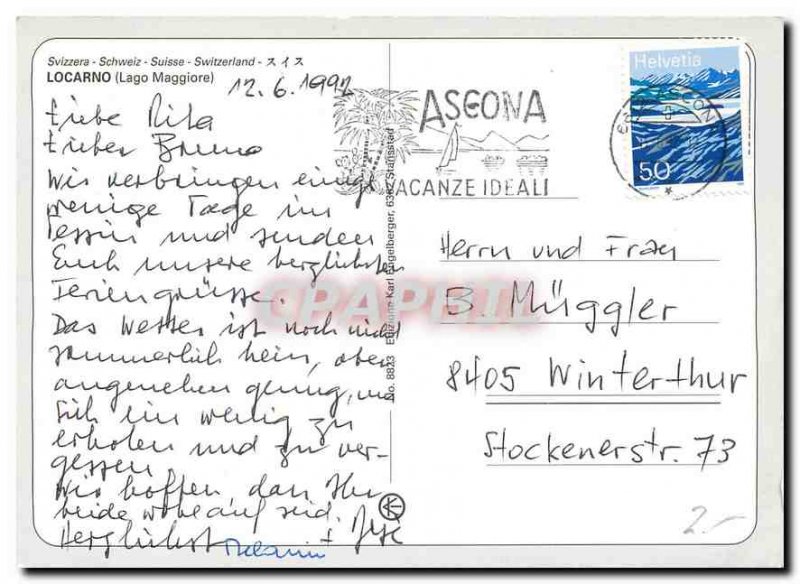 Svizzera - Schweiz - Suisse - Switzerland - スイス
LOCARNO (Lago Maggiore)
12.6.1992
Liebe Rita
Lieber Bruno
Wir verbringen einige
wenige Tage im
Tessin und senden
Euch unsere herzlichsten
Feriengrüsse.
Das Wetter ist noch nicht
sommerlich heiss, aber
angenehm genug, um
sich ein wenig zu
erholen und zu ver-
gessen
Wir hoffen, dass Ihr
beide wohlauf seid.
Herzlichst
+
No. 8823 Edizione Karl Engelberger, 6362 Stansstad
K
ASCONA
VACANZE IDEALI
Helvetia
50
ASCONA
Herrn und Frau
B. Müggler
8405 Winterthur
Stockenerstr. 73
2.-
CPAPHIL